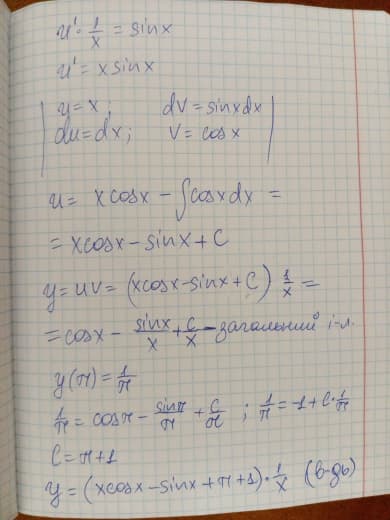 u' · 1/x = sinx
u' = x sinx
u = x; dv = sinxdx
du = dx; v = cosx
u = xcosx - ∫cosxdx =
= xcosx - sinx + C
y = uv = (xcosx - sinx + C) 1/x =
= cosx - sinx/x + C/x - загальний і-л.
y(π) = 1/π
1/π = cosπ - sinπ/π + C/π ; 1/π = -1 + C · 1/π
C = π + 1
y = (xcosx - sinx + π + 1) · 1/x (в-дь)